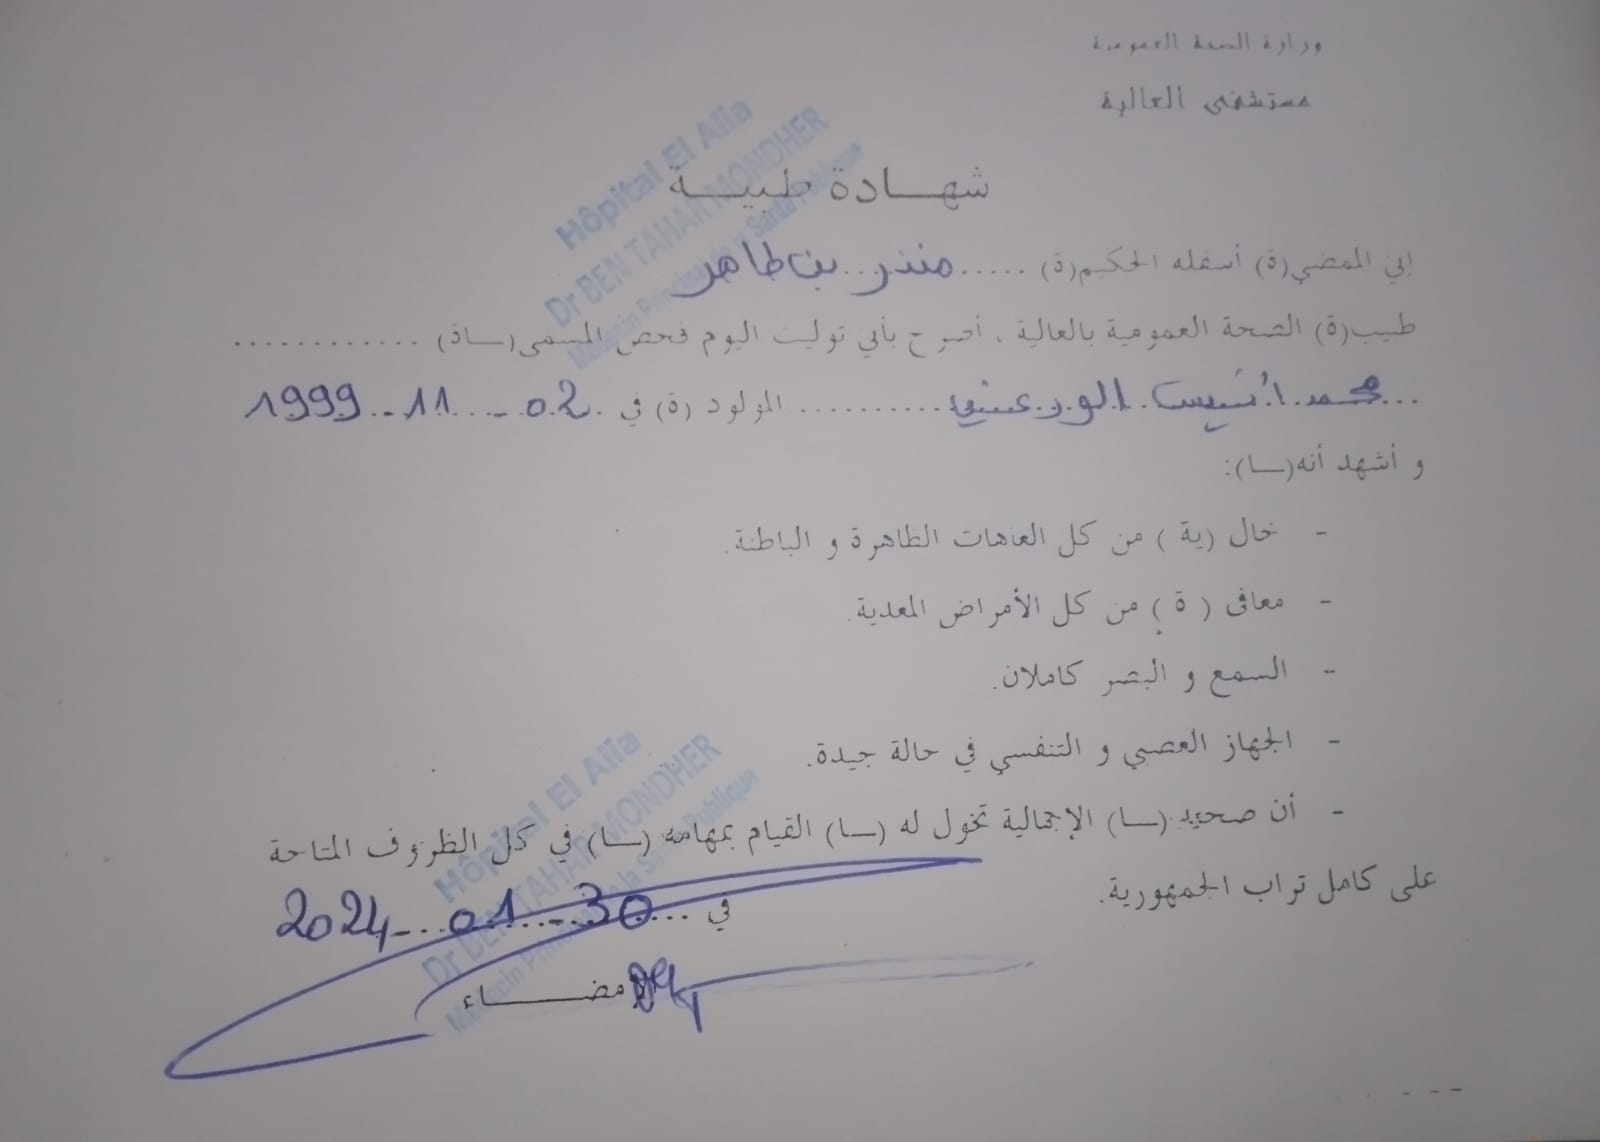 وزارة الصحة العمومية
مستشفى العالية
شهـــادة طبيـــة
إني الممضي(ة) أسفله الحكيم(ة) ..... منذر بن طاهر
طبيب(ة) الصحة العمومية بالعالية ، أصرح بأني توليت اليوم فحص المسمى(ــاة) ............
... محمد أنيس الورغي .......... المولود (ة) في 02 - 11 - 1999
و أشهد أنه(ــا):
- خال (ية ) من كل العاهات الظاهرة و الباطنة.
- معافى ( ة ) من كل الأمراض المعدية.
- السمع و البصر كاملان.
- الجهاز العصبي و التنفسي في حالة جيدة.
- أن صحته (ــا) الإجمالية تخول له (ــا) القيام بمهامه (ــا) في كل الظروف المتاحة
على كامل تراب الجمهورية.
في 30 - 01 - 2024
الإمضـــــاء
Hôpital El Alia
Dr BEN TAHAR MONDHER
Médecin Principal de la Santé Publique
Hôpital El Alia
Dr BEN TAHAR MONDHER
Médecin Principal de la Santé Publique